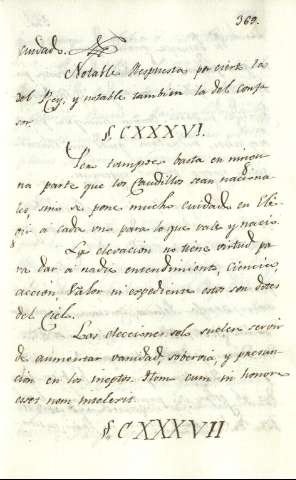 369.
cuidado.
Notable Respuesta por cierto la
del Rey, y notable tambien la del confe
sor.
§. CXXXVI.
tampoco basta en ningu
na parte que los Caudillos sean naciona
les, sino se pone mucho cuidado en Ele
gir a cada uno para lo que vale y nacio.
La elevacion no tiene virtud pa
ra dar a nadie entendimiento, Ciencia,
accion, Valor ni expediente estos son dotes
del Cielo.
Las elecciones solo suelen servir
de aumentar vanidad, sobervia, y presun
cion en los ineptos. Item cum in honore
esset non intelexit.
§. CXXXVII